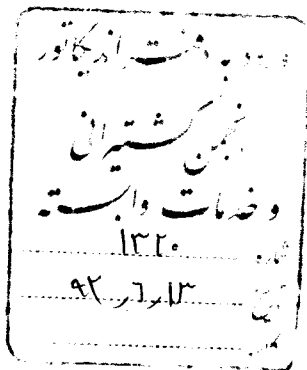 ورود به دفتر اندیکاتور
انجمن کشتیرانی
و خدمات وابسته
شماره ۱۳۲۰
تاریخ ۹۲٫۶٫۱۳